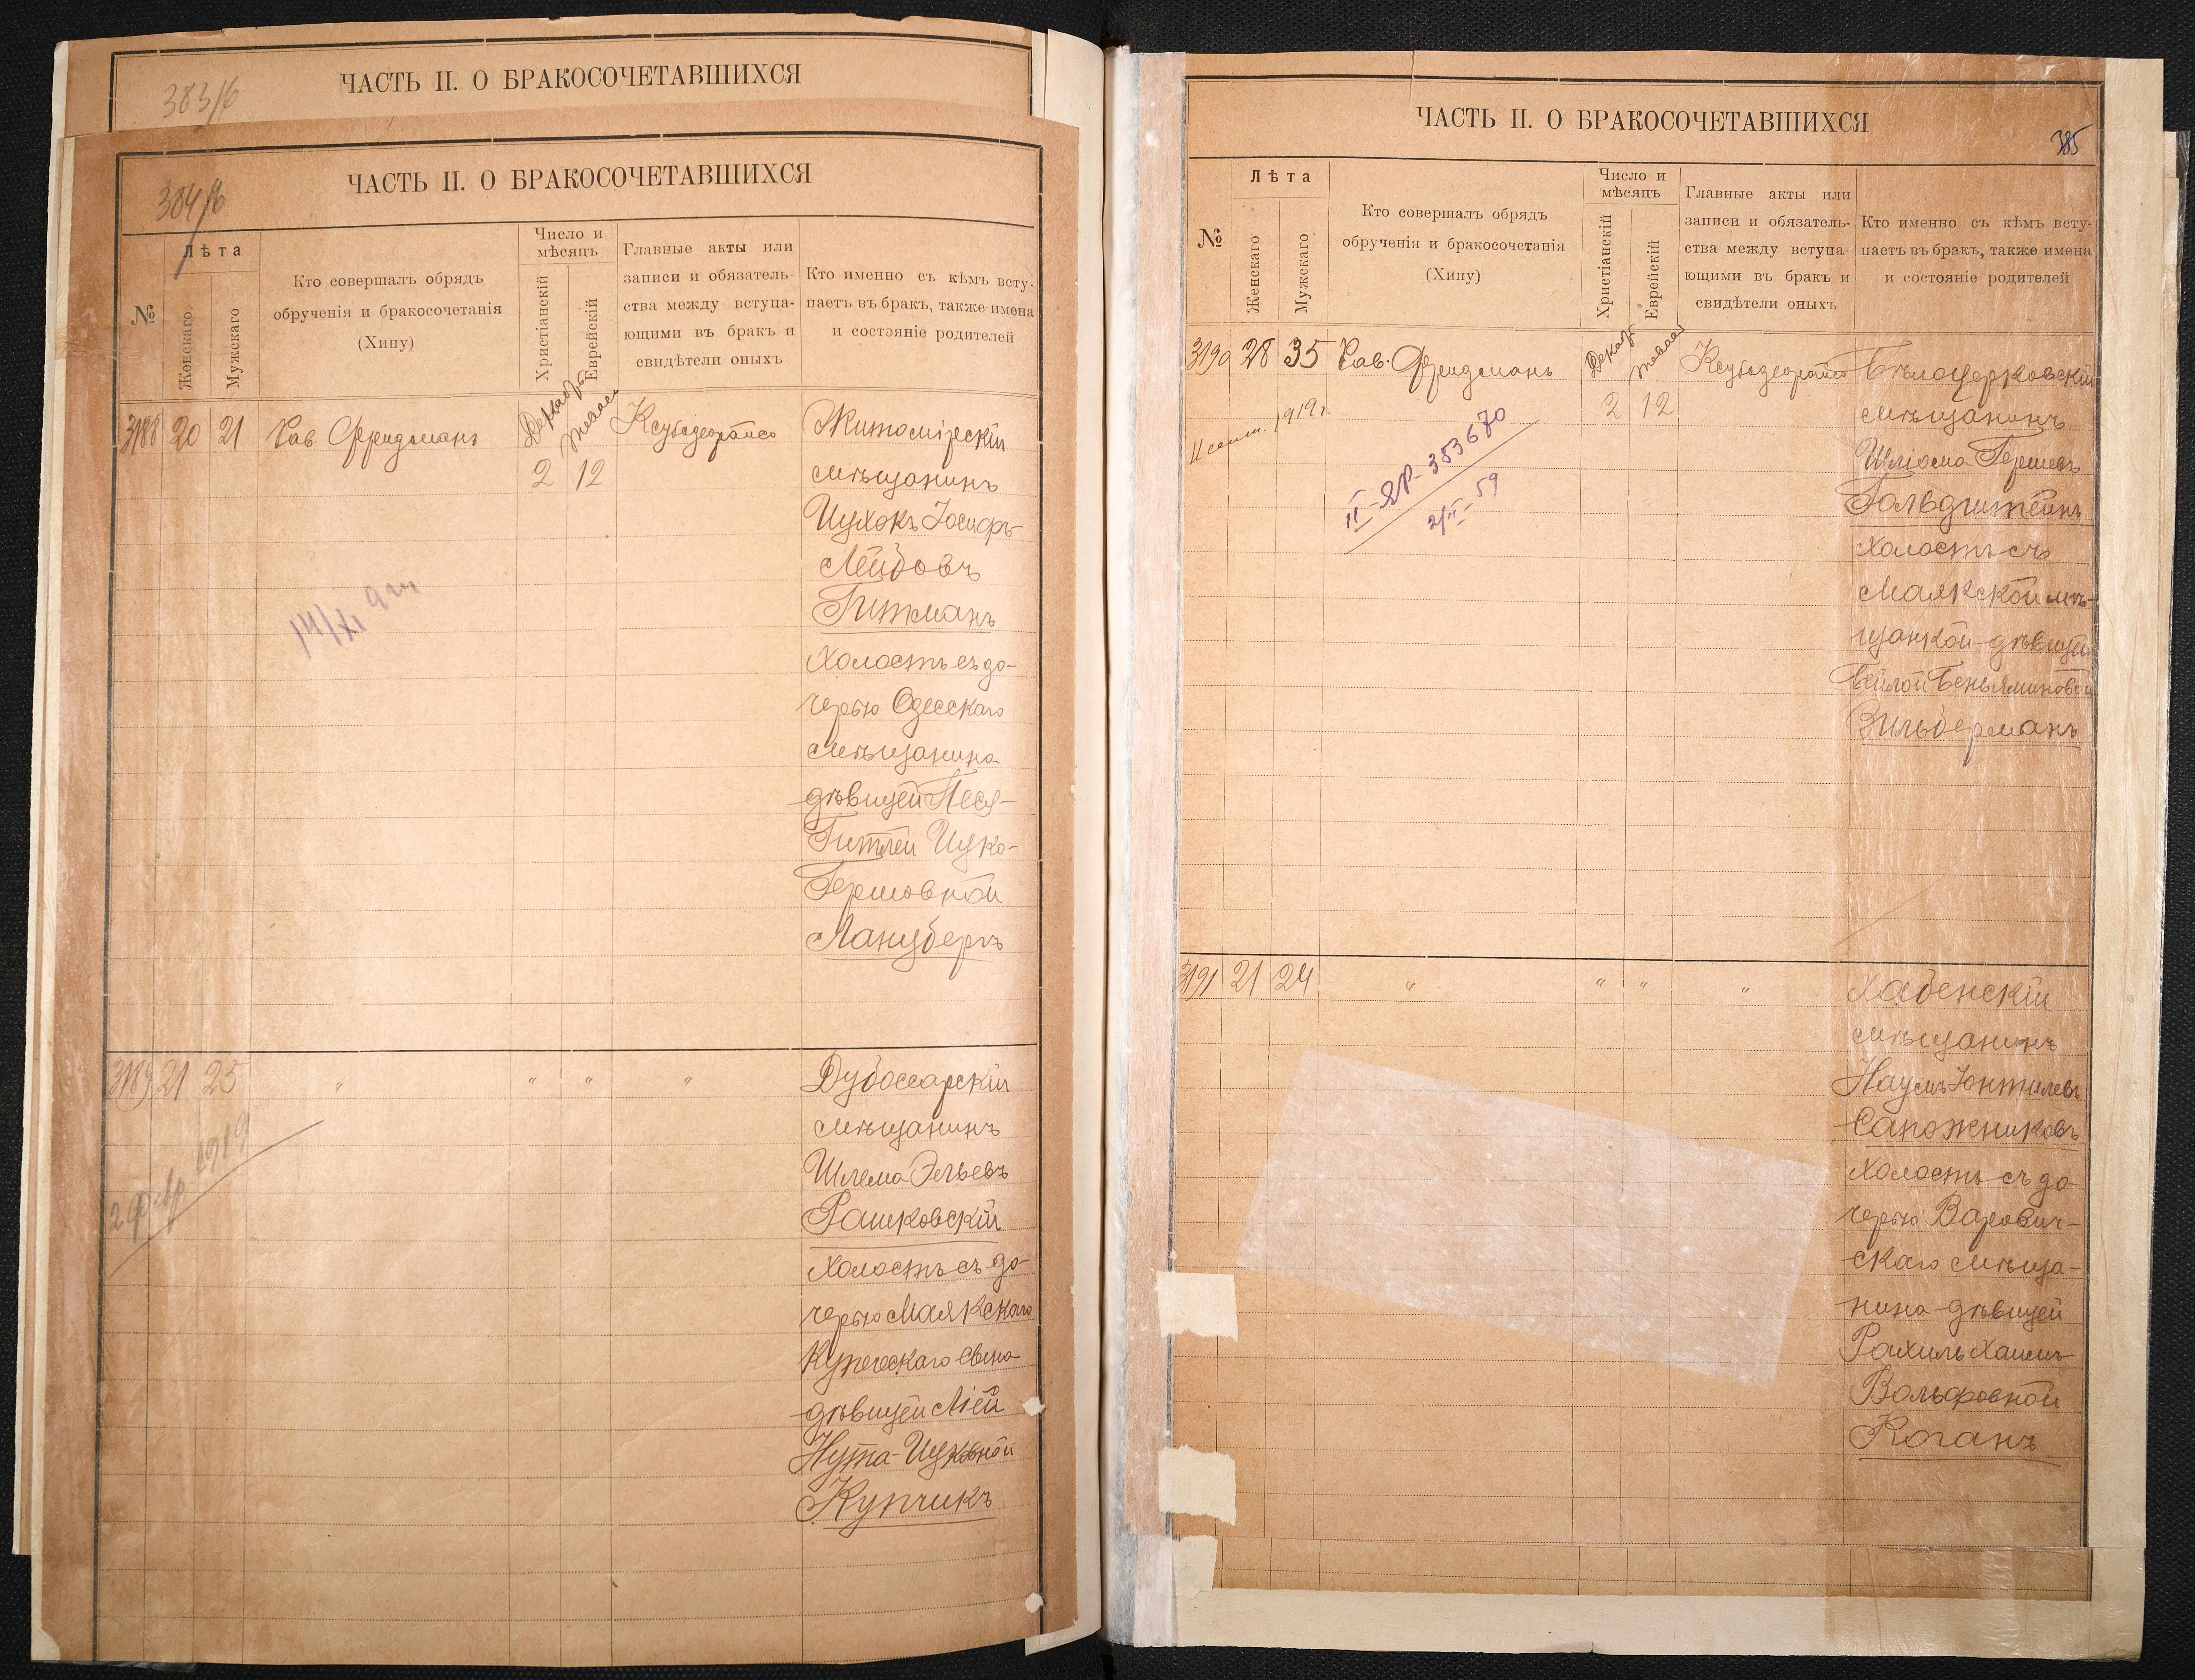 ЧАСТЬ II. О БРАКОСОЧЕТАВШИХСЯ
383/б
ЧАСТЬ II. О БРАКОСОЧЕТАВШИХСЯ
384/б
№
Лѣта
Женскаго
Мужскаго
Кто совершалъ обрядъ
обрученія и бракосочетанія
(Хипу)
Число и
мѣсяцъ
Христіанскій
Еврейскій
Главные акты или
записи и обязатель-
ства между вступа-
ющими въ бракъ и
свидѣтели оныхъ
Кто именно съ кѣмъ всту-
паетъ въ бракъ, также имена
и состояніе родителей
3188 20 21 Рав. Фридманъ
2 12
Житомірскій
мѣщанинъ
Ицхокъ Іосифъ-
Лейбовъ
Гитманъ
холостъ съ до-
черью Одесскаго
мѣщанина
дѣвицей Песя-
Гитлей Ицко-
Гершовной
Ланцбергъ
3189 21 25 " " " "
1919
Дубоссарскій
мѣщанинъ
Шлема Эльевъ
Рашковскій
холостъ съ до-
черью Маякскаго
купеческаго сына
дѣвицей Ліей
Нута-Ицковной
Купчикъ
ЧАСТЬ II. О БРАКОСОЧЕТАВШИХСЯ
385
№
Лѣта
Женскаго
Мужскаго
Кто совершалъ обрядъ
обрученія и бракосочетанія
(Хипу)
Число и
мѣсяцъ
Христіанскій
Еврейскій
Главные акты или
записи и обязатель-
ства между вступа-
ющими въ бракъ и
свидѣтели оныхъ
Кто именно съ кѣмъ всту-
паетъ въ бракъ, также имена
и состояніе родителей
3190 28 35 Рав. Фридманъ
2 12
1919 г.
II-ЯР-353670
Бѣлоцерковскій
мѣщанинъ
Шліома Гершевъ
Гольдштейнъ
холостъ съ
Маякской мѣ-
щанкой дѣвицей
Бейлой Беньяминовой
Зильберманъ
3191 21 24 " " " "
Хабенскій
мѣщанинъ
Наумъ Юнтилевъ
Сапожниковъ
холостъ съ до
черью Варович-
скаго мѣща-
нина дѣвицей
Рахиль Хаимъ-
Вольфовной
Коганъ